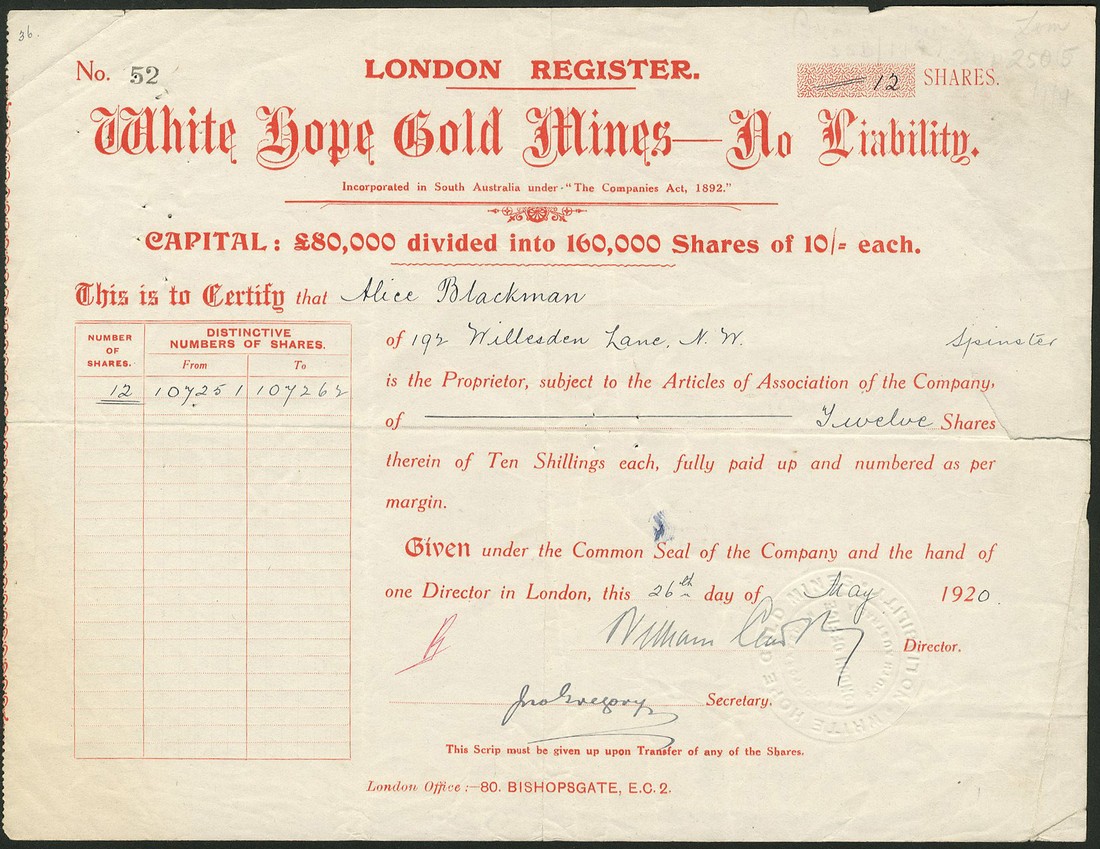 36.
No. 52
LONDON REGISTER.
12 SHARES.
2505
White Hope Gold Mines—No Liability.
Incorporated in South Australia under "The Companies Act, 1892."
CAPITAL: £80,000 divided into 160,000 Shares of 10/- each.
This is to Certify that Alice Blackman
of 192 Willesden Lane, N.W. Spinster
is the Proprietor, subject to the Articles of Association of the Company,
of Twelve Shares
therein of Ten Shillings each, fully paid up and numbered as per
margin.
NUMBER OF SHARES.
DISTINCTIVE NUMBERS OF SHARES.
From To
12 107251 107262
Given under the Common Seal of the Company and the hand of
one Director in London, this 26th day of May 1920.
William Director.
Jno Gregory Secretary.
WHITE HOPE GOLD MINES NO LIABILITY
This Scrip must be given up upon Transfer of any of the Shares.
London Office:—80. BISHOPSGATE, E.C.2.